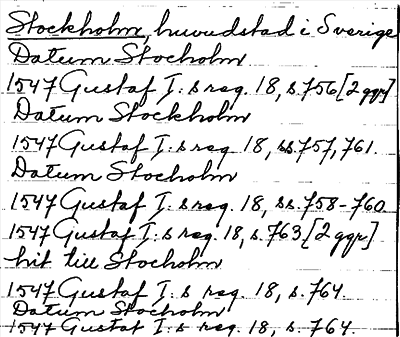 Stockholm, huvudstad i Sverige
Datum Stocholm
1547 Gustaf I:s reg. 18, s. 756 [2 ggr]
Datum Stockholm
1547 Gustaf I:s reg. 18, ss. 757, 761.
Datum Stocholm
1547 Gustaf I:s reg. 18, ss. 758-760
1547 Gustaf I:s reg. 18, s. 763 [2 ggr]
hit till Stocholm
1547 Gustaf I:s reg. 18, s. 764.
Datum Stocholm
1547 Gustaf I:s reg. 18, s. 764.